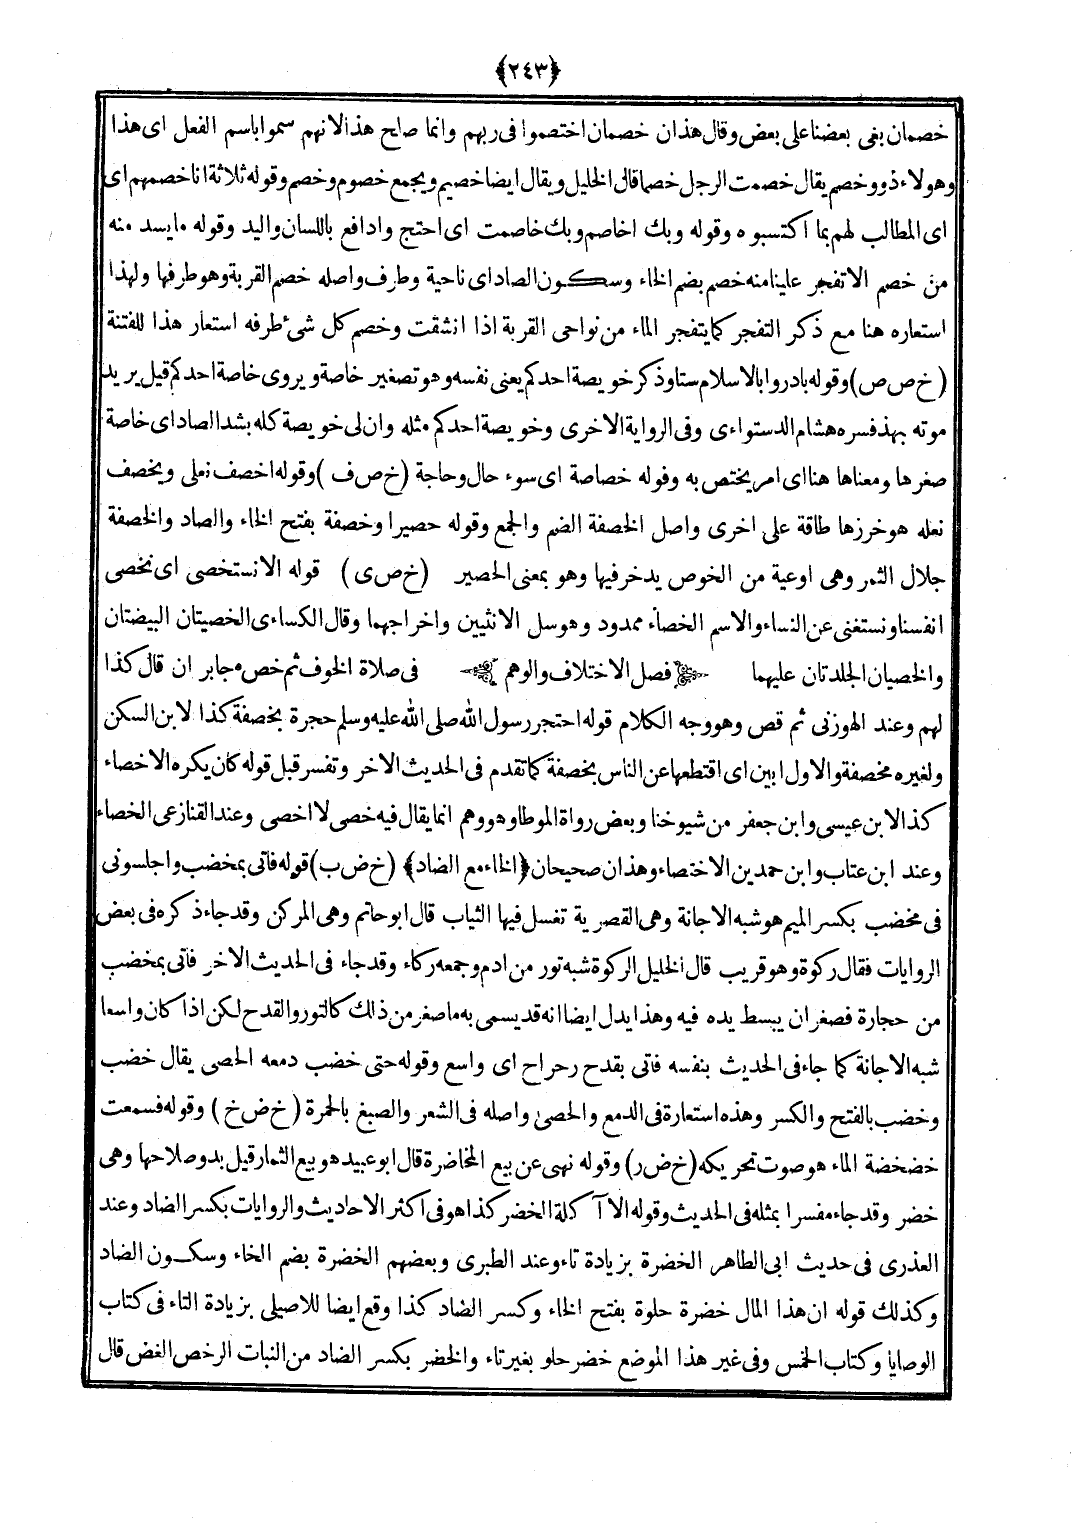 ﴿٢٤٣﴾
خصمان بغى بعضنا على بعض وقال هذان خصمان اختصموا فى ربهم وانما صلح هذا لانهم سموا باسم الفعل اى هذا
وهولاء ذوو خصم يقال خصمت الرجل خصما قال الخليل ويقال ايضا خصيم ويجمع خصوم وخصم وقوله ثلاثة انا خصمهم اى
اى المطالب لهم بما اكتسبوه وقوله وبك اخاصم وبك خاصمت اى احتج وادافع باللسان واليد وقوله مايسد منه
من خصم الا تفجر علينا منه خصم بضم الخاء وسكون الصاد اى ناحية وطرف واصله خصم القربة وهو طرفها ولهذا
استعاره هنا مع ذكر التفجر كما يتفجر الماء من نواحى القربة اذا انشقت وخصم كل شئ طرفه استعار هذا للفتنة
(خ ص ص) وقوله بادروا بالاسلام ستا وذكر خويصة احدكم يعنى نفسه وهو تصغير خاصة ويروى خاصة احدكم قيل يريد
موته بهذ فسره هشام الدستواءى وفى الرواية الاخرى وخويصة احدكم مثله وان لى خويصة كله بشد الصاد اى خاصة
صغرها ومعناها هنا اى امر يختص به وقوله خصاصة اى سوء حال وحاجة (خ ص ف) وقوله اخصف نعلى ويخصف
نعله هو خرزها طاقة على اخرى واصل الخصفة الضم والجمع وقوله حصيرا وخصفة بفتح الخاء والصاد والخصفة
جلال الثمر وهى اوعية من الخوص يدخر فيها وهو بمعنى الحصير (خ ص ى) قوله الا نستخصى اى نخصى
انفسنا ونستغنى عن النساء والاسم الخصاء ممدود وهو سل الانثيين واخراجهما وقال الكساءى الخصيتان البيضتان
والخصيان الجلدتان عليهما فصل الاختلاف والوهم فى صلاة الخوف ثم خص جابر ان قال كذا
لهم وعند الهوزنى ثم قص وهو وجه الكلام قوله احتجر رسول الله صلى الله عليه وسلم حجرة بخصفة كذا لابن السكن
ولغيره مخصفة والاول ابين اى اقتطعها عن الناس بخصفة كما تقدم فى الحديث الاخر وتفسر قبل قوله كان يكره الاخصاء
كذا لابن عيسى وابن جعفر من شيوخنا وبعض رواة الموطا وهو وهم انما يقال فيه خصى لا اخصى وعند القنازعى الخصاء
وعند ابن عتاب وابن حمدين الاختصاء وهذان صحيحان ﴿الخاء مع الضاد﴾ (خ ض ب) قوله فاتى بمخضب واجلسونى
فى مخضب بكسر الميم هو شبه الاجانة وهى القصرية تغسل فيها الثياب قال ابو حاتم وهى المركن وقد جاء ذكره فى بعض
الروايات فقال ركوة وهو قريب قال الخليل الركوة شبه تور من ادم وجمعه ركاء وقد جاء فى الحديث الاخر فاتى بمخضب
من حجارة فصغر ان يبسط يده فيه وهذا يدل ايضا انه قد يسمى به ما صغر من ذلك كالتور والقدح لكن اذا كان واسعا
شبه الاجانة كما جاء فى الحديث بنفسه فاتى بقدح رحراح اى واسع وقوله حتى خضب دمعه الحصى يقال خضب
وخضب بالفتح والكسر وهذه استعارة فى الدمع والحصى واصله فى الشعر والصبغ بالحمرة (خ ض خ) وقوله فسمعت
خضخضة الماء هو صوت تحريكه (خ ض ر) وقوله نهى عن بيع المخاضرة قال ابو عبيد هو بيع الثمار قيل بدو صلاحها وهى
خضر وقد جاء مفسرا بمثله فى الحديث وقوله الا آكلة الخضر كذا هو فى اكثر الاحاديث والروايات بكسر الضاد وعند
العذرى فى حديث ابى الطاهر الخضرة بزيادة تاء وعند الطبرى وبعضهم الخضرة بضم الخاء وسكون الضاد
وكذلك قوله ان هذا المال خضرة حلوة بفتح الخاء وكسر الضاد كذا وقع ايضا للاصيلى بزيادة التاء فى كتاب
الوصايا وكتاب الخمس وفى غير هذا الموضع خضر حلو بغير تاء والخضر بكسر الضاد من النبات الرخص الغض قال